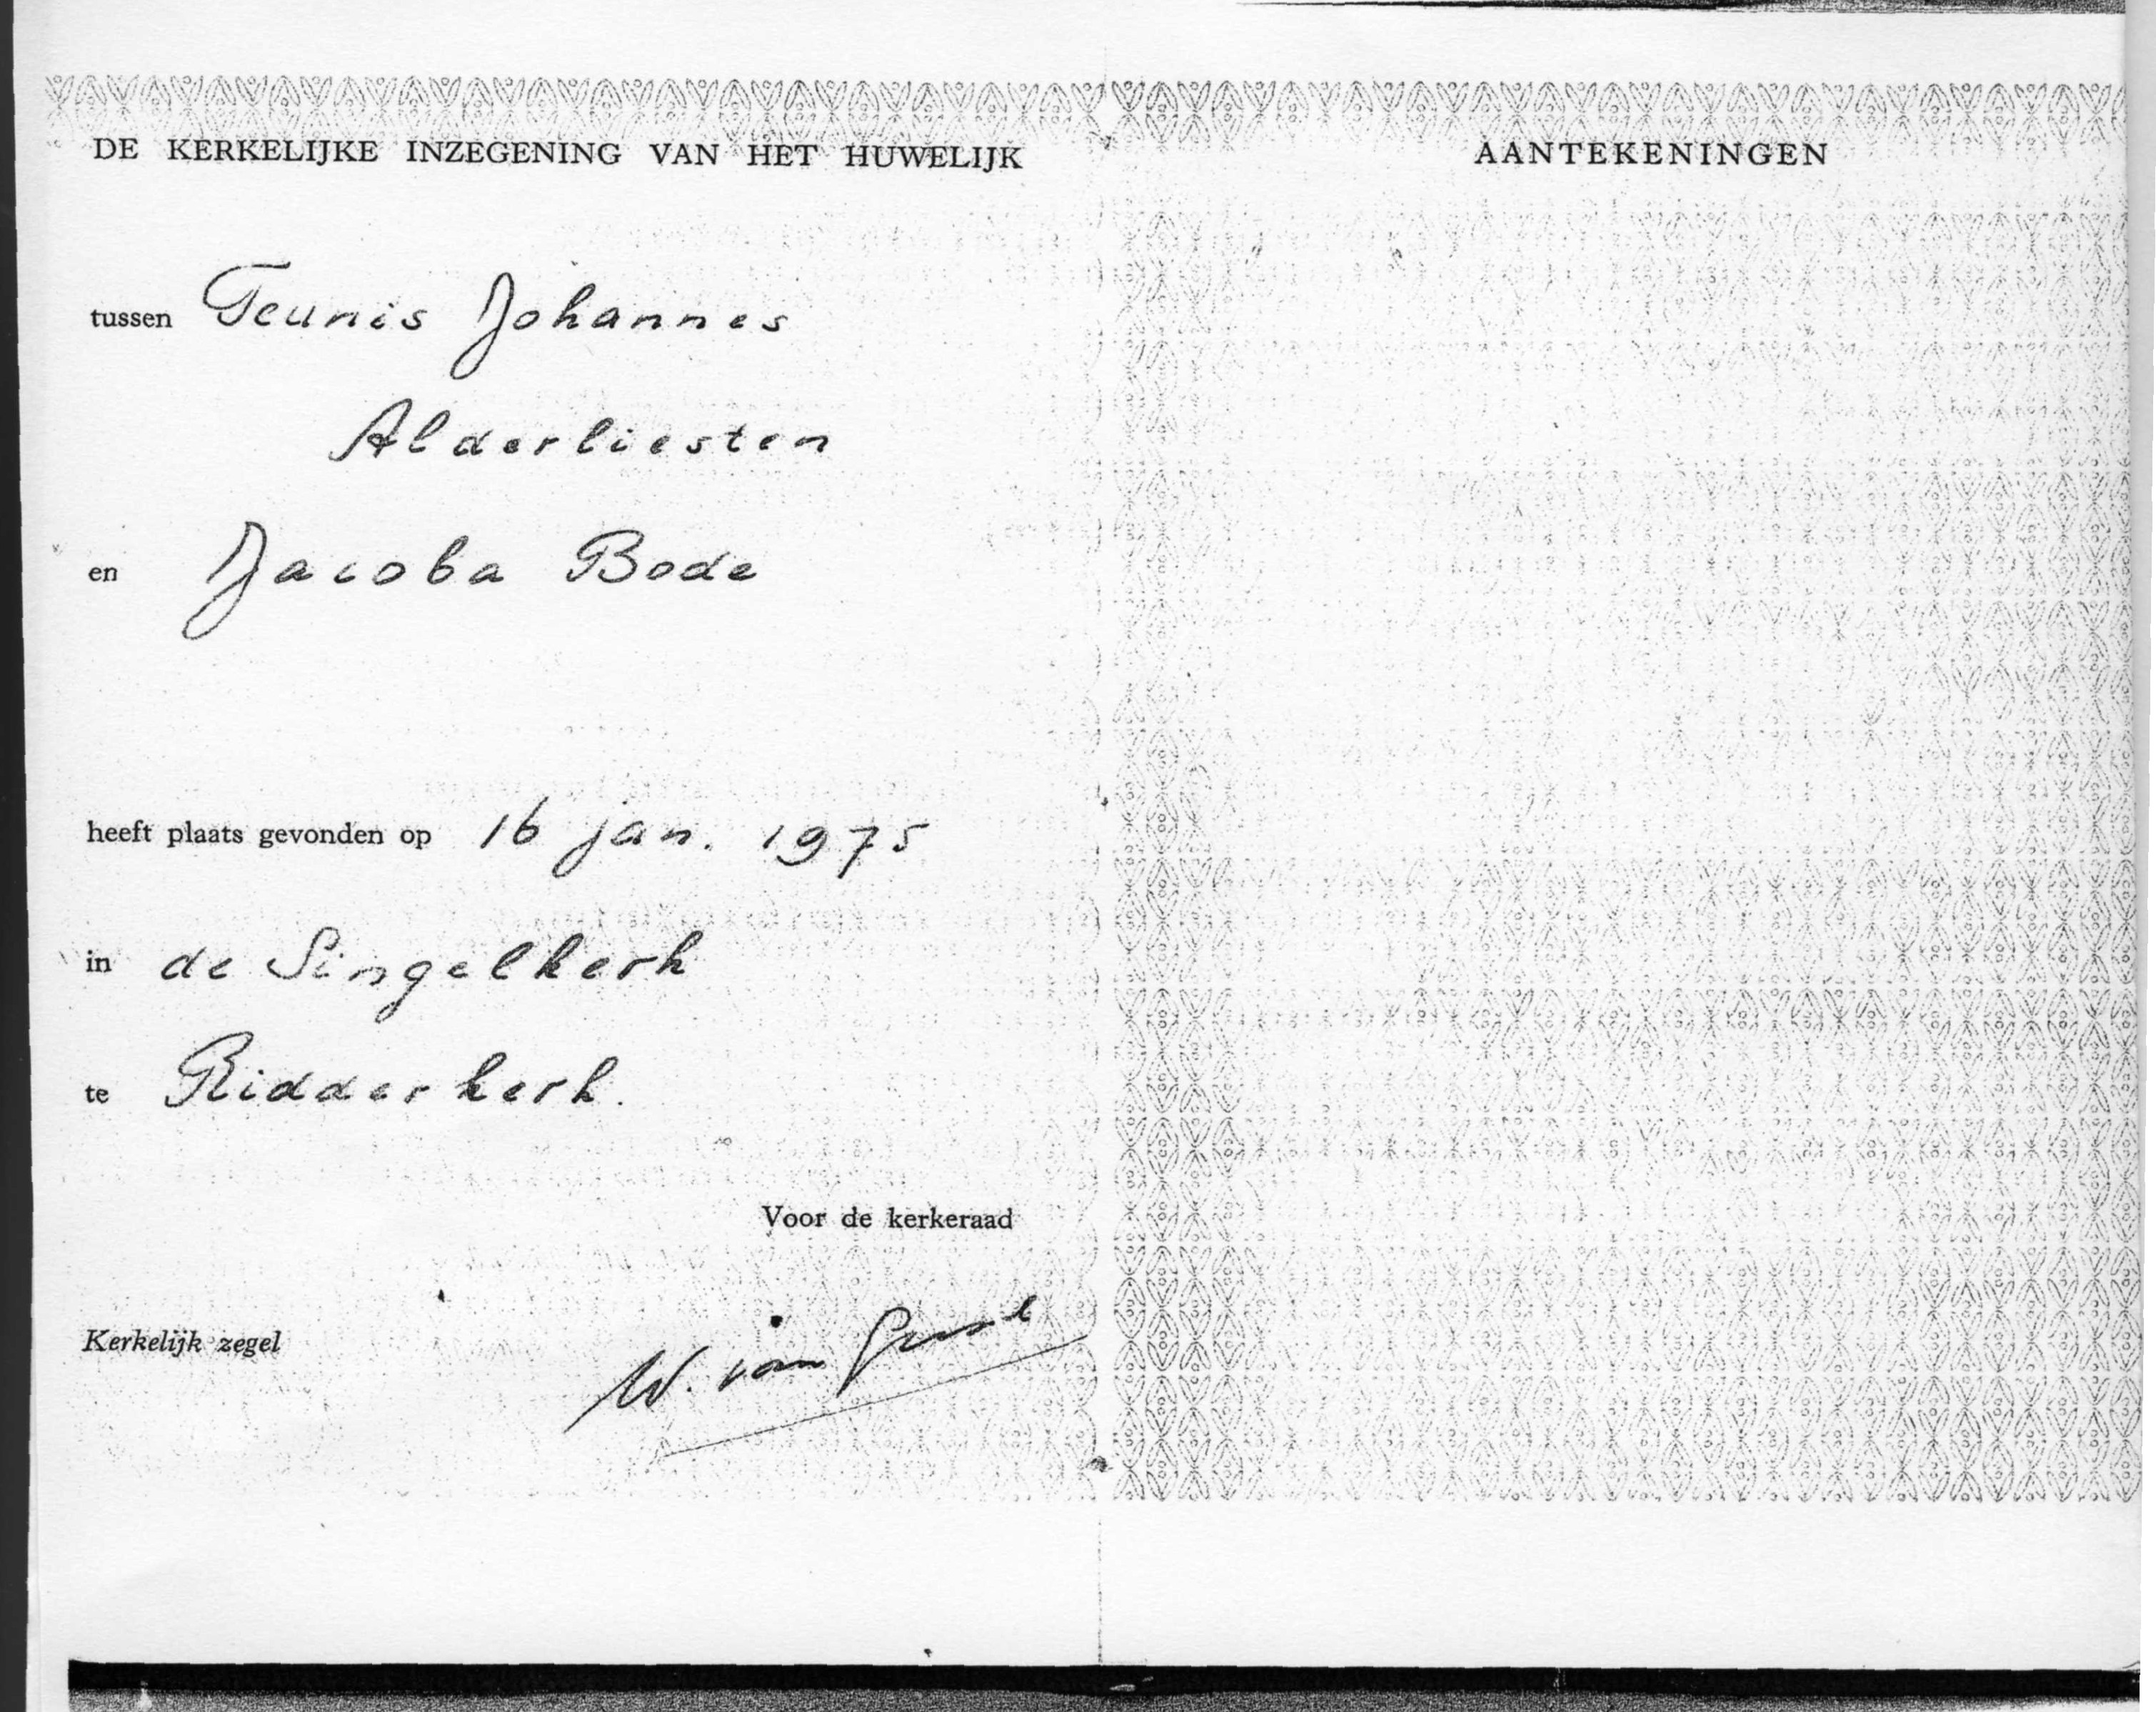 DE KERKELIJKE INZEGENING VAN HET HUWELIJK
tussen Teunis Johannes
Alderliesten
en Jacoba Bode
heeft plaats gevonden op 16 jan. 1975
in de Singelkerk
te Ridderkerk.
Voor de kerkeraad
Kerkelijk zegel
W. van
AANTEKENINGEN